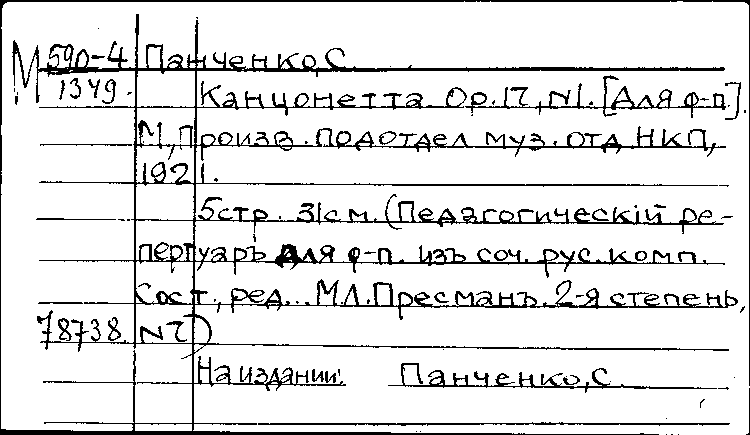 М 590-4 Панченко, С.
1349. Канцонетта. Op. 17, N1. [Для ф-п].
М, Произв. подотдел муз. отд. НКП,
1921.
5стр. 31см. (Педагогическiй ре-
пертуаръ для ф-п. изъ соч. рус. комп.
Сост., ред... М.Л. Пресманъ. 2-я степень,
78738 N7)
На издании: Панченко, С.